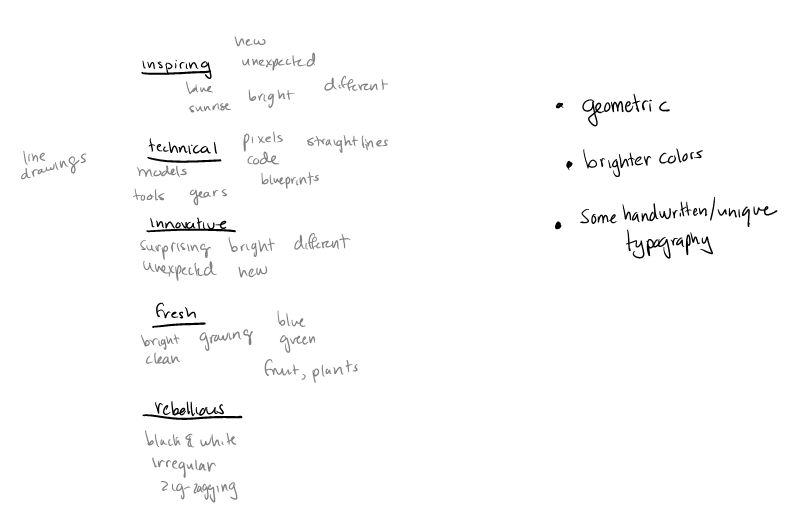 new
inspiring
unexpected
blue
sunrise
bright
different
line
drawings
technical
pixels
straight lines
code
models
blueprints
tools gears
innovative
surprising bright different
unexpected new
fresh
blue
bright growing green
clean
fruit, plants
rebellious
black & white
irregular
zig-zagging
• geometric
• brighter colors
• Some handwritten/unique
typography